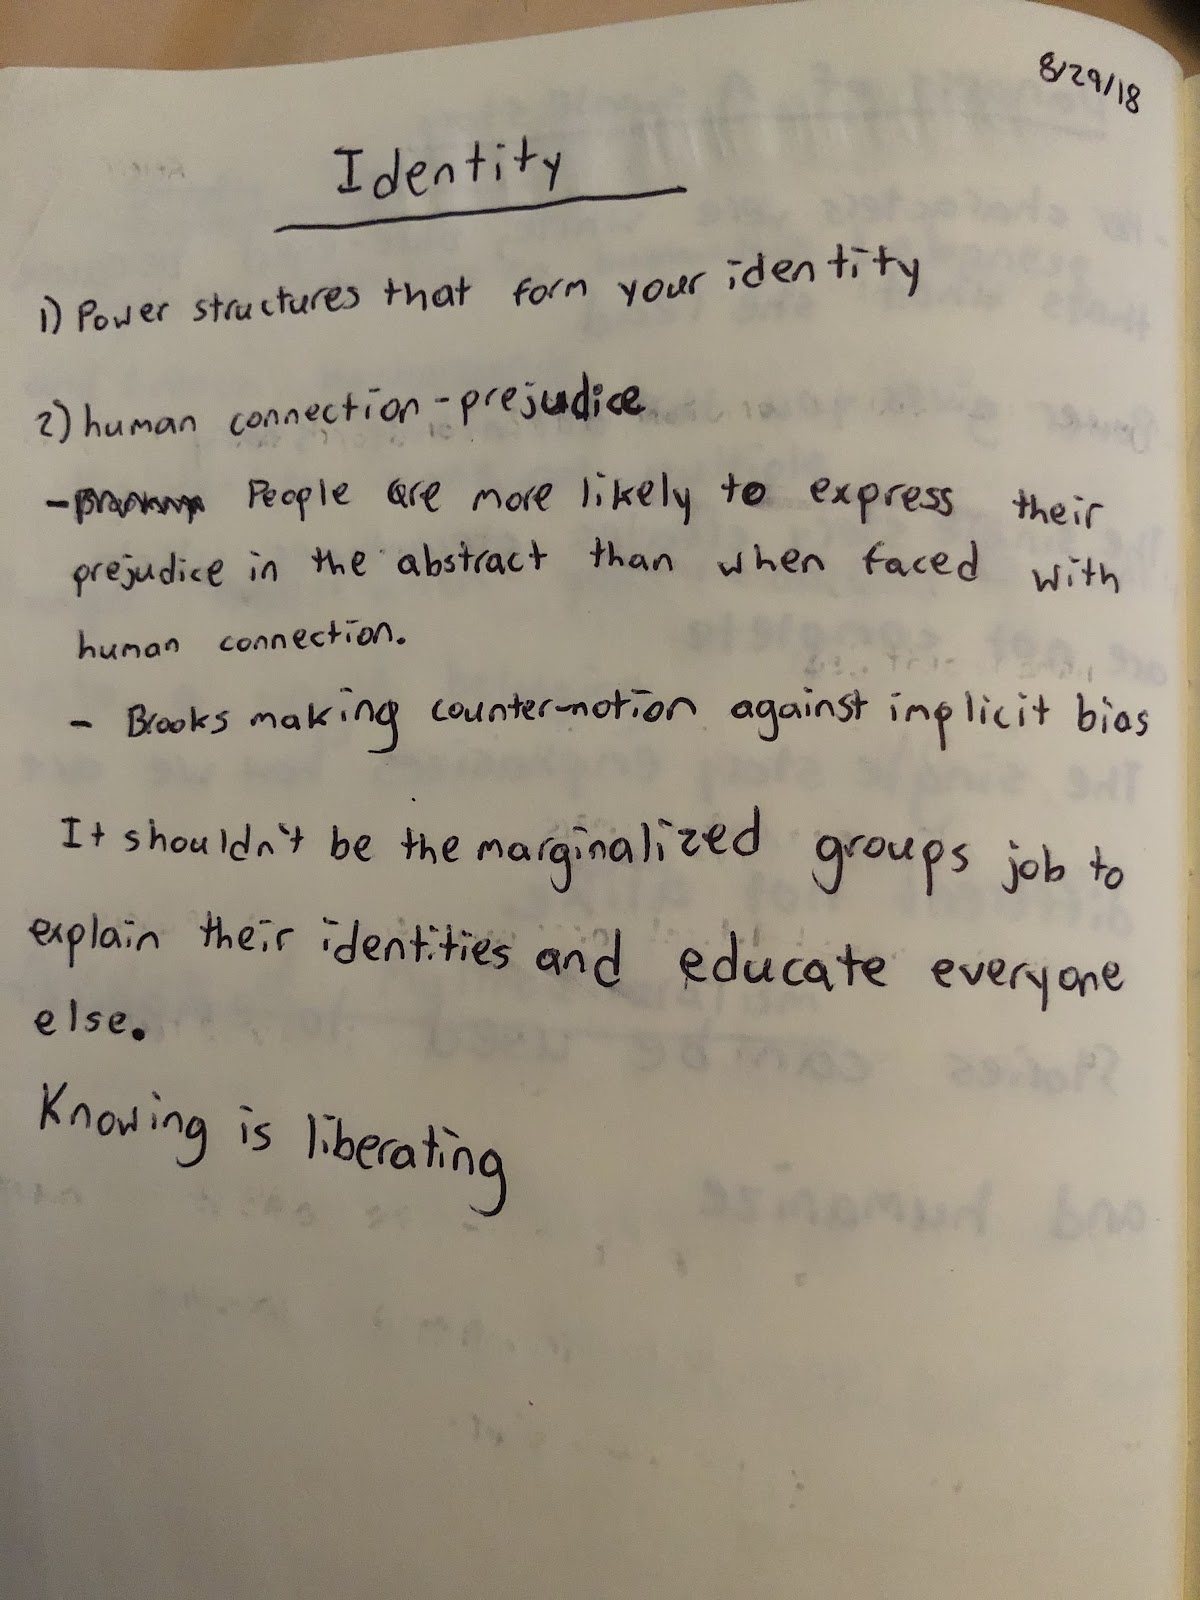 8/29/18
Identity
1) Power structures that form your identity
2) human connection - prejudice
- People are more likely to express their
prejudice in the abstract than when faced with
human connection.
- Brooks making counter-notion against implicit bias
It shouldn't be the marginalized groups job to
explain their identities and educate everyone
else.
Knowing is liberating